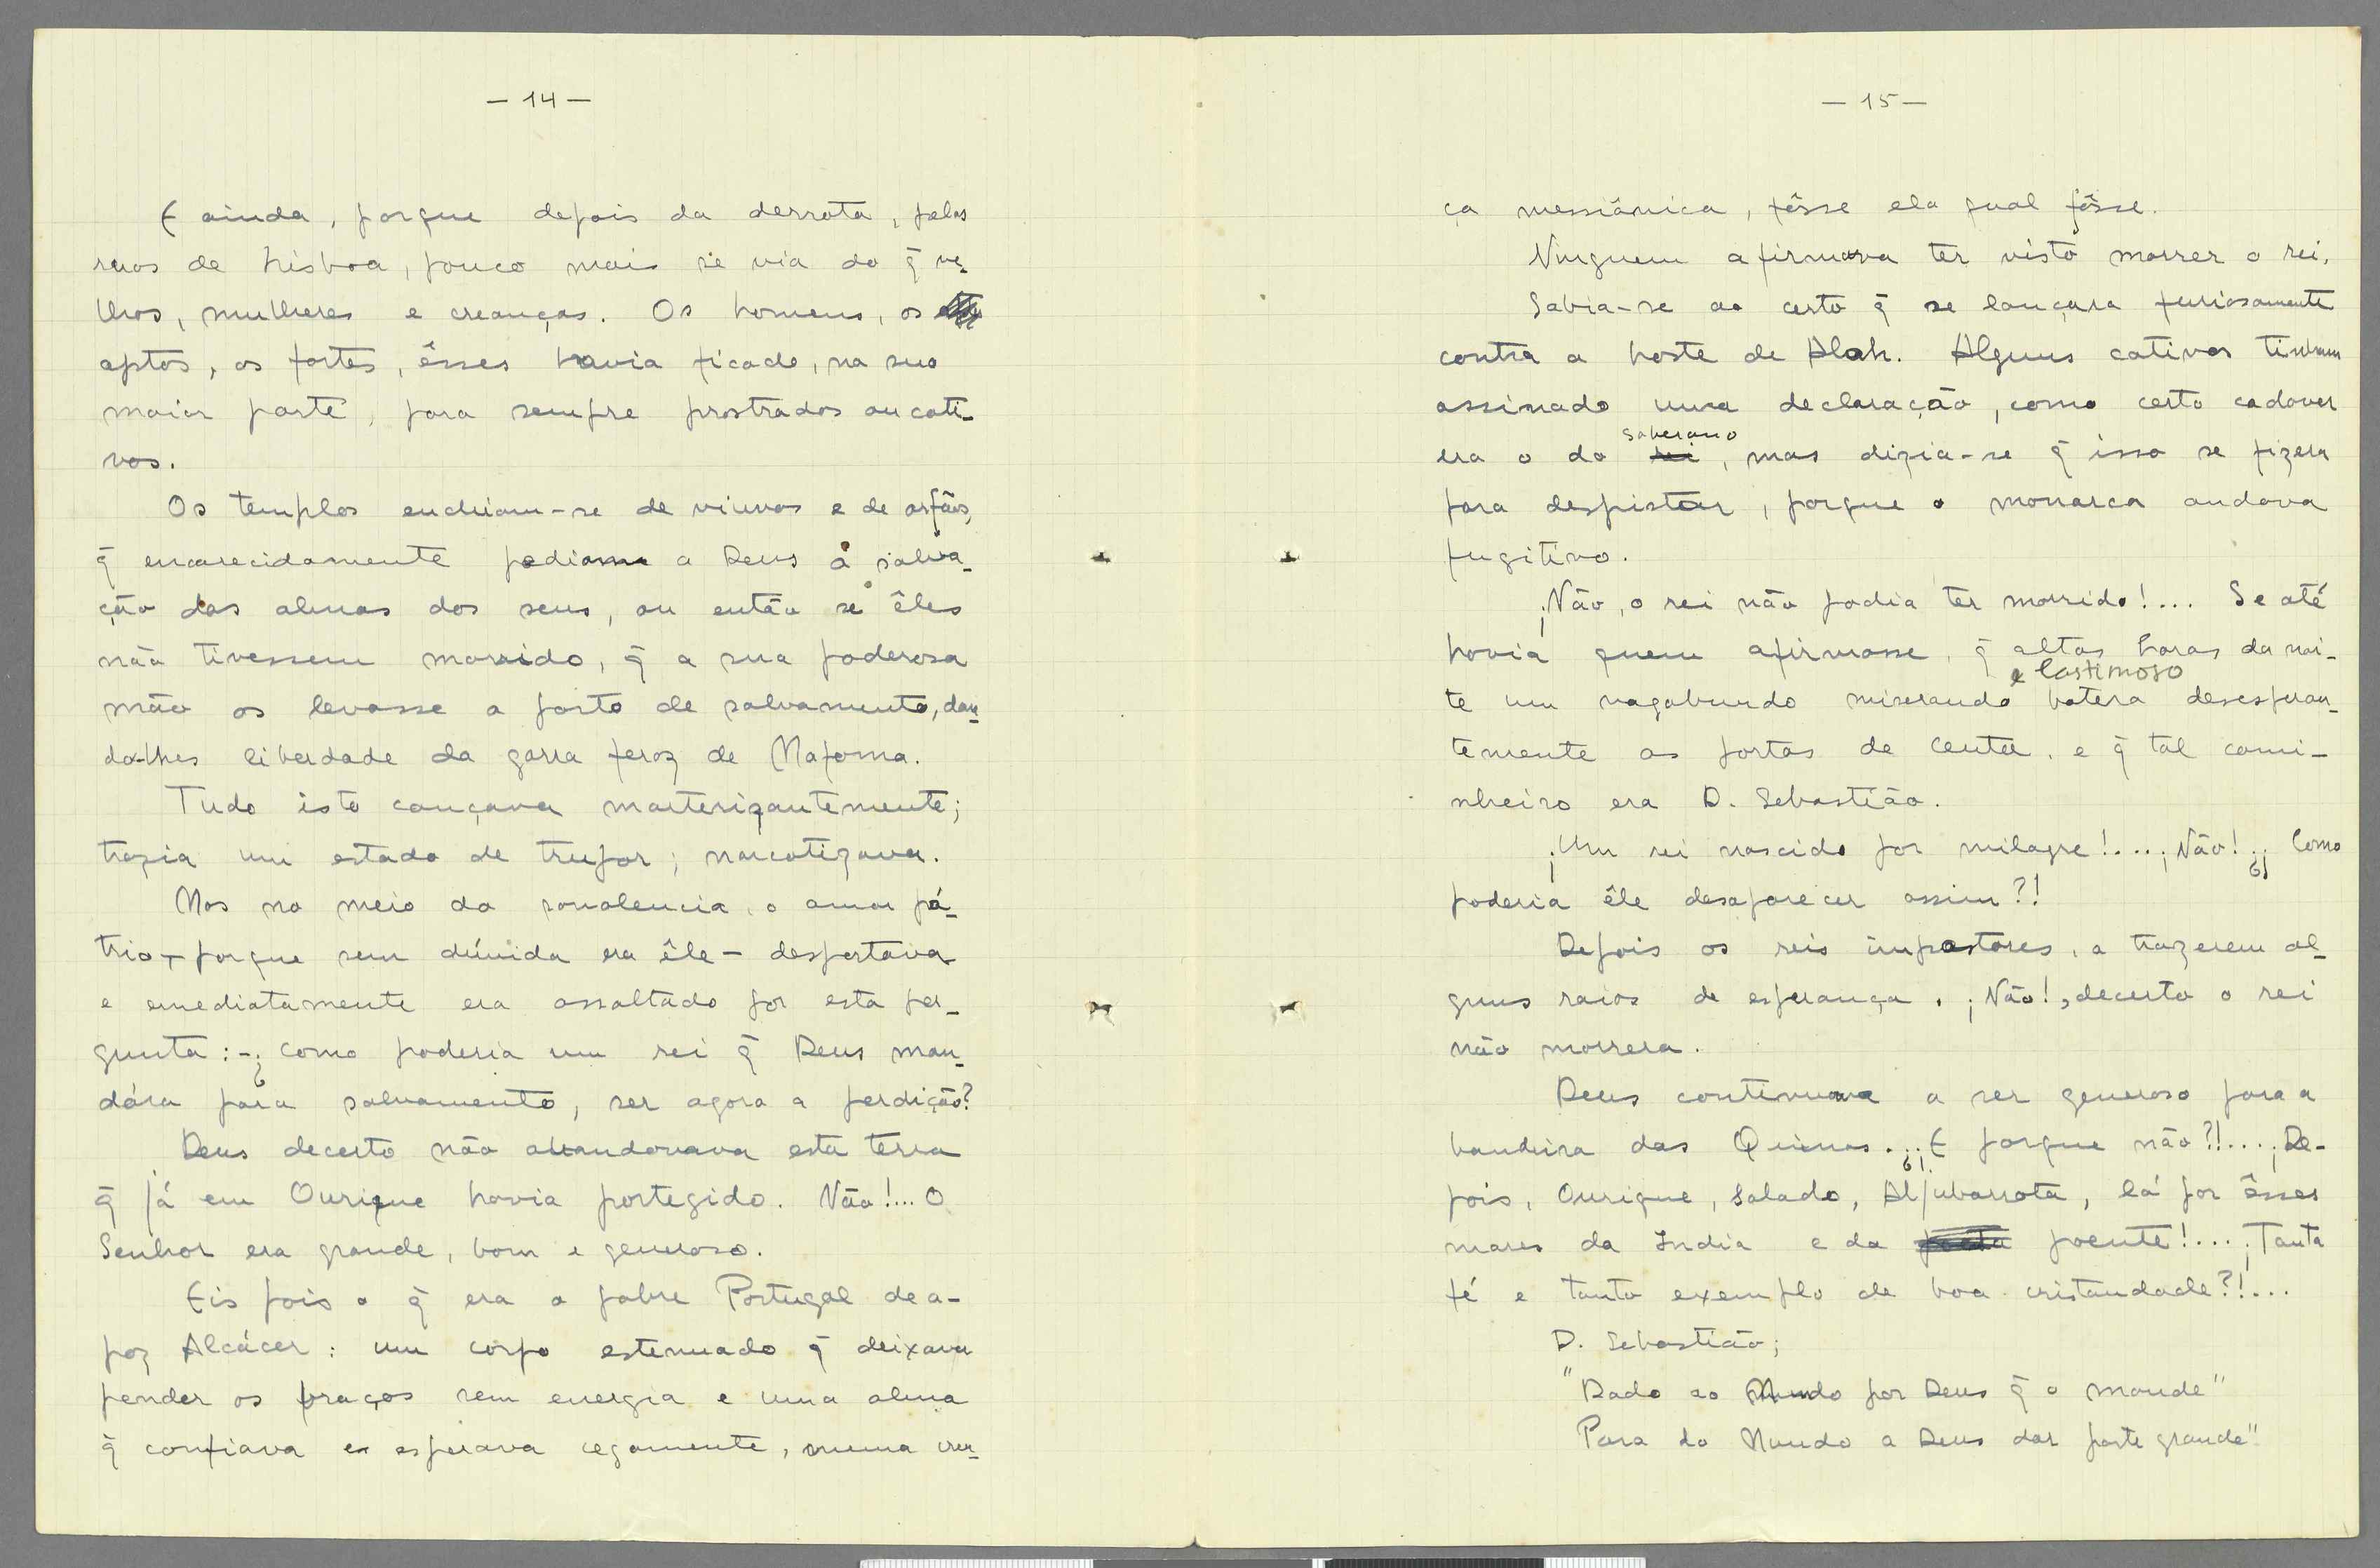 — 14 —
E ainda, porque depois da derrota, pelas
ruas de Lisboa, pouco mais se via do q̃ ve-
lhos, mulheres e creanças. Os homens, os
aptos, os fortes, êsses havia ficado, na sua
maior parte, para sempre prostrados ou cati-
vos.
Os templos enchiam-se de viuvas e de orfãos,
q̃ encarecidamente pediam a Deus a salva-
ção das almas dos seus, ou então se êles
não tivessem morrido, q̃ a sua poderosa
mão os levasse a porto de salvamento, dan-
do-lhes liberdade da garra feroz de Mafoma.
Tudo isto cançava marterizantemente;
trazia um estado de trupor; narcotizava.
Mas no meio da sonolencia, o amor pá-
trio — porque sem dúvida era êle — despertava
e emediatamente era assaltado por esta per-
gunta: - ¿como poderia um rei q̃ Deus man-
dára para salvamento, ser agora a perdição?
Deus decerto não abandonava esta terra
q̃ já em Ourique havia portegido. Não!... O
Senhor era grande, bom e generoso.
Eis pois o q̃ era o pobre Portugal de a-
poz Alcácer: um corpo estenuado q̃ deixava
pender os braços sem energia e uma alma
q̃ confiava e esperava cegamente, numa cren-
— 15 —
ça messiânica, fôsse ela qual fôsse.
Ninguem afirmava ter visto morrer o rei.
Sabia-se ao certo q̃ se lançara furiosamente
contra a hoste de Alah. Alguns cativos tinham
assinado uma declaração, como certo cadaver
era o do rei soberano, mas dizia-se q̃ isso se fizera
para despistar, porque o monarca andava
fugitivo.
¡Não, o rei não podia ter morrido!... Se até
havia quem afirmasse, q̃ altas horas da noi-
te um vagabundo miserando e lastimoso batera desesperan-
temente as portas de Ceuta, e q̃ tal cami-
nheiro era D. Sebastião.
¡Um rei nascido por milagre!... ¡Não! ¿¡Como
poderia êle desaparecer assim?!
Depois os reis impostores, a trazerem al-
guns raios de esperança. ¡Não!, decerto o rei
não morrera.
Deus continuava a ser generoso para a
bandeira das Quinas. ¿¡E porque não?!... ¡De-
pois, Ourique, Salado, Aljubarrota, lá por êsses
mares da India e do poente!... ¡Tanta
fé e tanto exemplo de boa cristandade?!...
D. Sebastião;
"Dado ao Mundo por Deus q̃ o mande"
Para do Mundo a Deus dar parte grande"